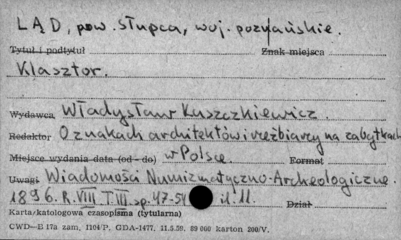 LĄD, pow. Słupca, woj. poznańskie.
Tytuł i podtytuł Znak miejsca
Klasztor.
Wydawca Władysław Łuszczkiewicz.
Redaktor O znakach architektów i rzeźbiarzy na zabytkach
Miejsce wydania data (od - do) w Polsce. Format
Uwagi Wiadomości Numizmatyczno-Archeologiczne.
1896. R. VIII T. III sp. 47-54 il. 11. Dział
Karta katalogowa czasopisma (tytularna)
CWD—II 17a zam. 1104/P. GDA-1477, 11.5.59. 89 000 karton 200/V.